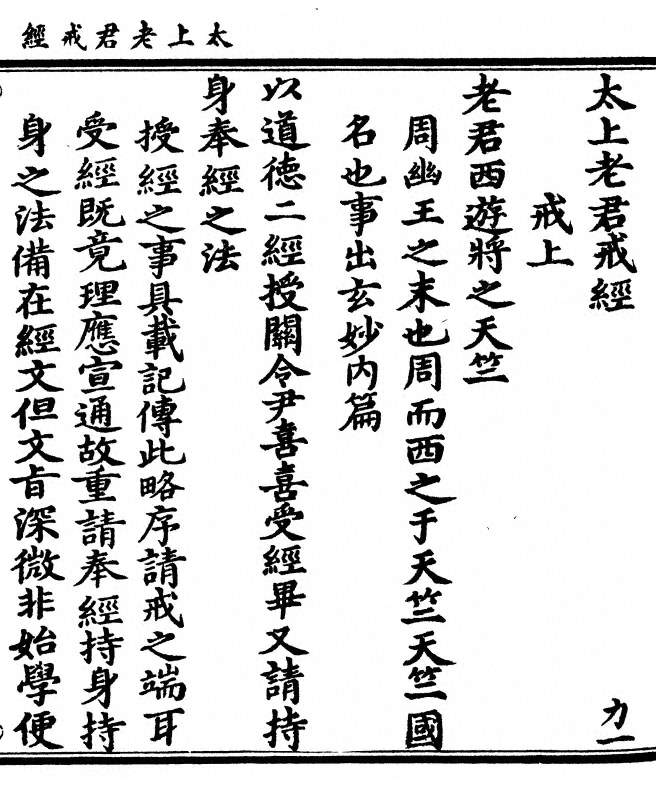 太上老君戒經
太上老君戒經 力一
戒上
老君西遊將之天竺
周幽王之末也周而西之于天竺天竺國
名也事出玄妙内篇
以道德二經授關令尹喜喜受經畢又請持
身奉經之法
授經之事具載記傳此略序請戒之端耳
受經既竟理應宣通故重請奉經持身持
身之法備在經文但文旨深微非始學便